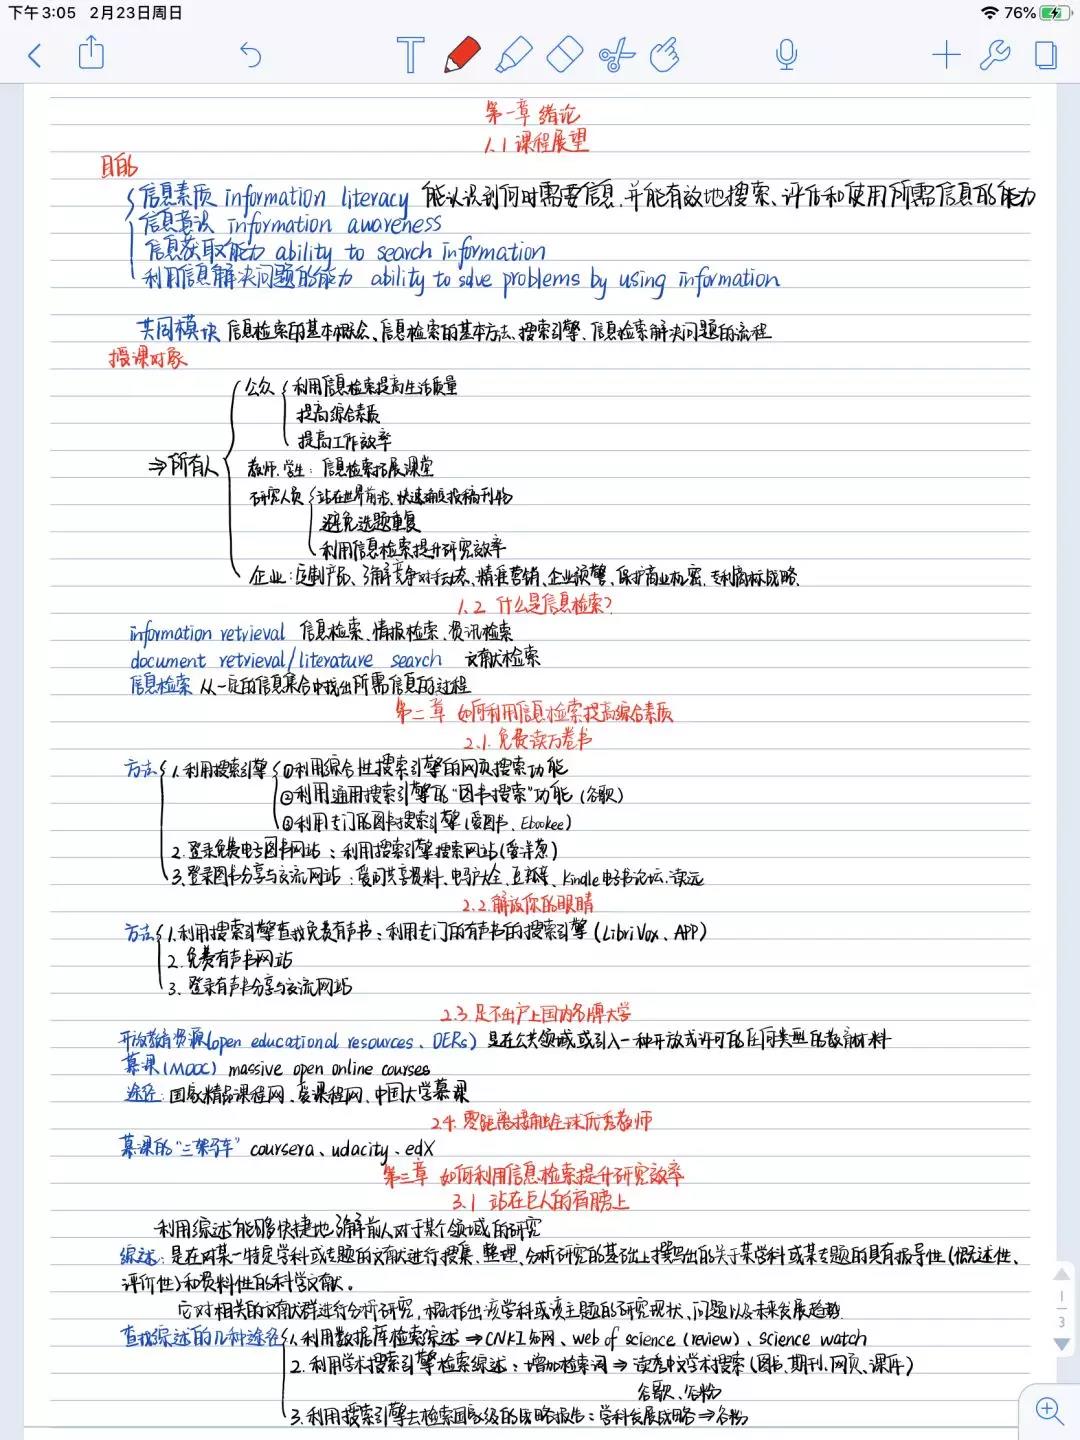 下午3:05 2月23日周日 76%
第一章 绪论
1.1 课程展望
目的
信息素质 information literacy 能认识到何时需要信息,并能有效地搜索、评估和使用所需信息的能力
信息意识 information awareness
信息获取能力 ability to search information
利用信息解决问题的能力 ability to solve problems by using information
共同模块 信息检索的基本概念、信息检索的基本方法、搜索引擎、信息检索解决问题的流程
授课对象
公众 利用信息检索提高生活质量
提高综合素质
提高工作效率
⇒所有人 教师、学生:信息检索拓展课堂
研究人员 站在世界前沿、快速投稿刊物
避免选题重复
利用信息检索提升研究效率
企业:定制产品、了解竞争对手动态、精准营销、企业预警、保护商业机密、专利商标战略.
1.2 什么是信息检索?
information retrieval 信息检索、情报检索、资讯检索
document retrieval/literature search 文献检索
信息检索 从一定的信息集合中找出所需信息的过程
第二章 如何利用信息检索提高综合素质
2.1.免费读万卷书
方法 1.利用搜索引擎 ①利用综合性搜索引擎的网页搜索功能
②利用通用搜索引擎的“图书搜索”功能(谷歌)
③利用专门的图书搜索引擎(爱图书、Ebookee)
2.登录免费电子图书网站:利用搜索引擎搜索网站(爱洋葱)
3.登录图书分享与交流网站:爱问共享资料、电驴大全、豆瓣、Kindle电子书论坛、读元
2.2.解放你的眼睛
方法 1.利用搜索引擎查找免费有声书:利用专门的有声书的搜索引擎(LibriVox、APP)
2.免费有声书网站
3.登录有声书分享与交流网站
2.3.足不出户上国内名牌大学
开放教育资源(open educational resources、OERs) 是在公共领域或引入一种开放式许可的任何类型的教育材料
慕课(MOOC) massive open online courses
途径:国家精品课程网、爱课程网、中国大学慕课
2.4.零距离接触全球优秀教师
慕课的“三架马车” coursera、udacity、edX
第三章 如何利用信息检索提升研究效率
3.1 站在巨人的肩膀上
利用综述能够快捷地了解前人对于某个领域的研究
综述:是在对某一特定学科或专题的文献进行搜集、整理、分析研究的基础上撰写出的关于某学科或某专题的具有报导性(概述性、
评价性)和资料性的科学文献。
它对相关的文献群进行分析研究,概括指出该学科或该主题的研究现状、问题以及未来发展趋势.
查找综述的几种途径 1.利用数据库检索综述⇒CNKI知网、web of science(review)、science watch
2.利用学术搜索引擎检索综述:增加检索词⇒读秀中文学术搜索(图书、期刊、网页、课件)
谷歌、谷粉
3.利用搜索引擎去检索国家级的战略报告:学科发展战略⇒谷粉
1
3